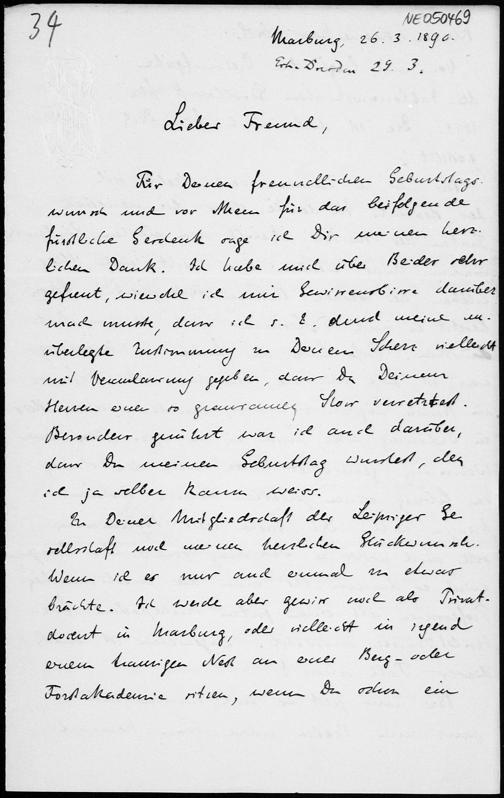 34
NE050469
Marburg, 26. 3. 1890.
Erh. Dresden 29. 3.
Lieber Freund,
Für Deinen freundlichen Geburtstags-
wunsch und vor Allem für das beifolgende
fürstliche Geschenk sage ich Dir meinen herz-
lichen Dank. Ich habe mich über Beides sehr
gefreut, wiewohl ich mir Gewissensbisse darüber
mach musste, dass ich s. Z. durch meine un-
überlegte Zustimmung zu Deinem Scherz vielleicht
mit Veranlassung gegeben, dass Du Deinem
Herzen einen so grausamen Stoss versetztest.
Besonders gerührt war ich auch darüber,
dass Du meinen Geburtstag wusstest, den
ich ja selber kaum weiss.
Zu Deiner Mitgliedschaft der Leipziger Ge-
sellschaft noch meinen herzlichen Glückwunsch.
Wenn ich es nur auch einmal zu etwas
brächte. Ich werde aber gewiss noch als Privat-
docent in Marburg, oder vielleicht in irgend
einem traurigen Nest an einer Berg- oder
Forstakademie sitzen, wenn Du schon ein